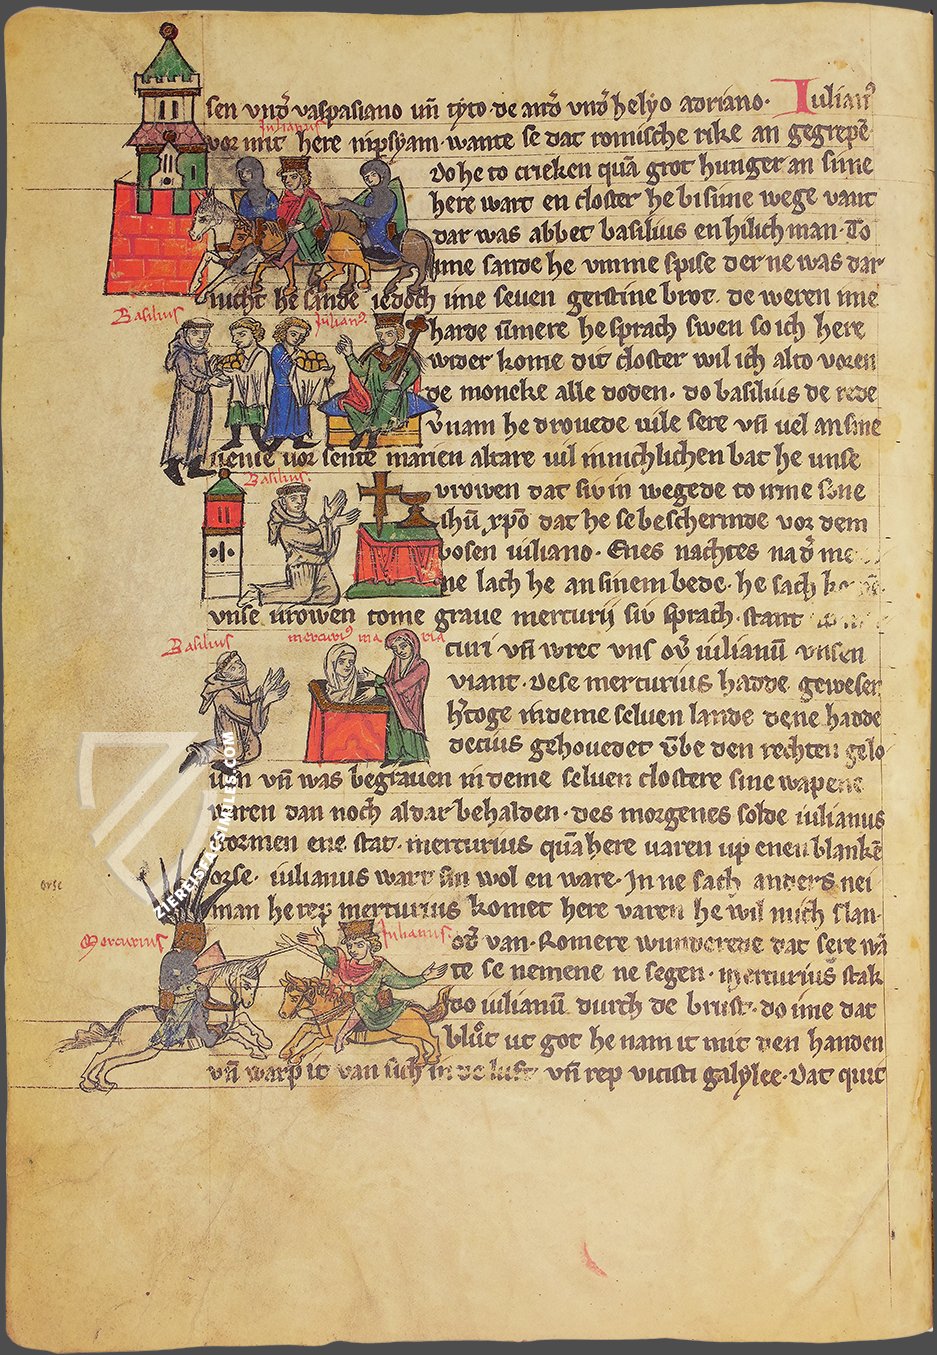 sen vnd̉ vaspasiano vn̄ tyto de and̉ vnd̉ helyo adriano. Iulian9
Iulianus
vor mit here in p̄syam. wante se dat romische rike an gegrepē
Do he to crieken quā grot hunger an sime
here wart en closter he bi sime wege vant
dar was abbet basilius en hilich man. To
ime sande he vmme spise der ne was dar
nicht he sande iedoch ime seuen gerstine brot. de weren ime
Basilius
Iulian9.
harde v̄mere he sprach swen so ich here
wider kome dit closter wil ich alto voren
de moneke alle doden. do basilius de rede
v̉nam he drouede uile sere vn̄ uel an sine
uenie uor sente marien altare uil innichlichen bat he unse
Basilius.
vrowen dat siv in wegede to irme sone
ihū xp̄o dat he se beschermde vor dem
bosen iuliano. Enes nachtes na d̉
ne lach he an sinem bede. he sach
vnse vrowen tome graue mercurij siv sprach. stant
Basilius
mercuri9 maria
curi vn̄ wrec vns oủ iulianū vnsen
viant. Dese mercurius hadde geweser
h̉toge in deme seluen lande dene hadde
decius gehouedet v̄be den rechten gelo
uen vn̄ was begrauen in deme seluen clostere sine wapene
waren dan noch aldar behalden. des morgenes solde iulianus
stormen ene stat. mercurius quā here uaren up eneu blankē
orse
orse. iulianus wart sin wol en ware. In ne sach anders nei
man he rep mercurius komet here varen he wil mich slan.
Mercurius
Iulianus.
od̉ van. Romere wunderede dat sere wā
te se nemene ne segen. mercurius stak
do iulianū durch de brust. do ime dat
blůt ut got he nam it mit den handen
vn̄ warp it van sich in de luft vn̄ rep vicisti galylee. Dat quit
ZIEREISFACSIMILES.COM